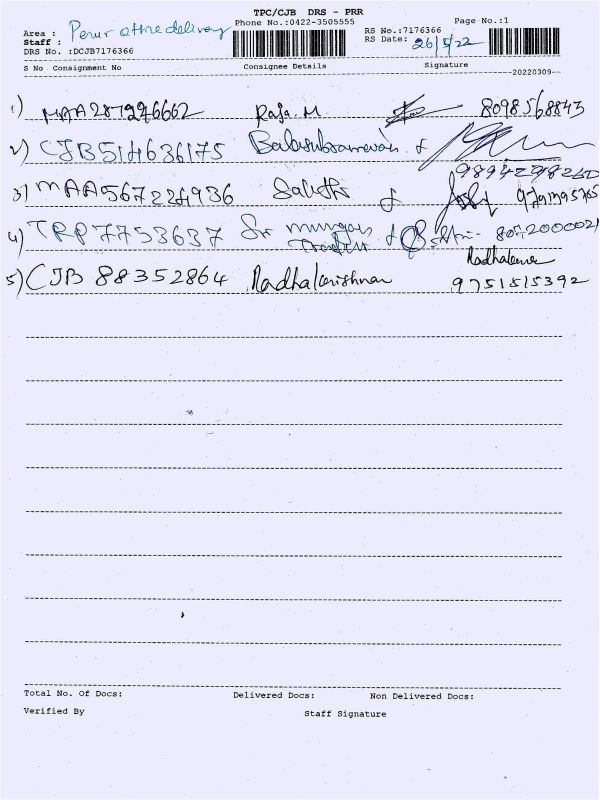 TPC/CJB DRS - PRR
Phone No.:0422-3505555
Page No.:1
Area : Perur office delivery
Staff :
DRS No. :DCJB7176366
RS No.:7176366
RS Date: 26/5/22
S No Consignment No Consignee Details Signature
20220309
1) MAA287246662 Raja M 8098568843
2) CJB514636175 Balasubramanian
9894298260
3) MAA567224936 Sakthi 9791395765
4) TRP7753637 Sri murugan
Traders
Radhakrishna
5) CJB 88352864 Radhakrishnan 9751515392
Total No. Of Docs: Delivered Docs: Non Delivered Docs:
Verified By Staff Signature